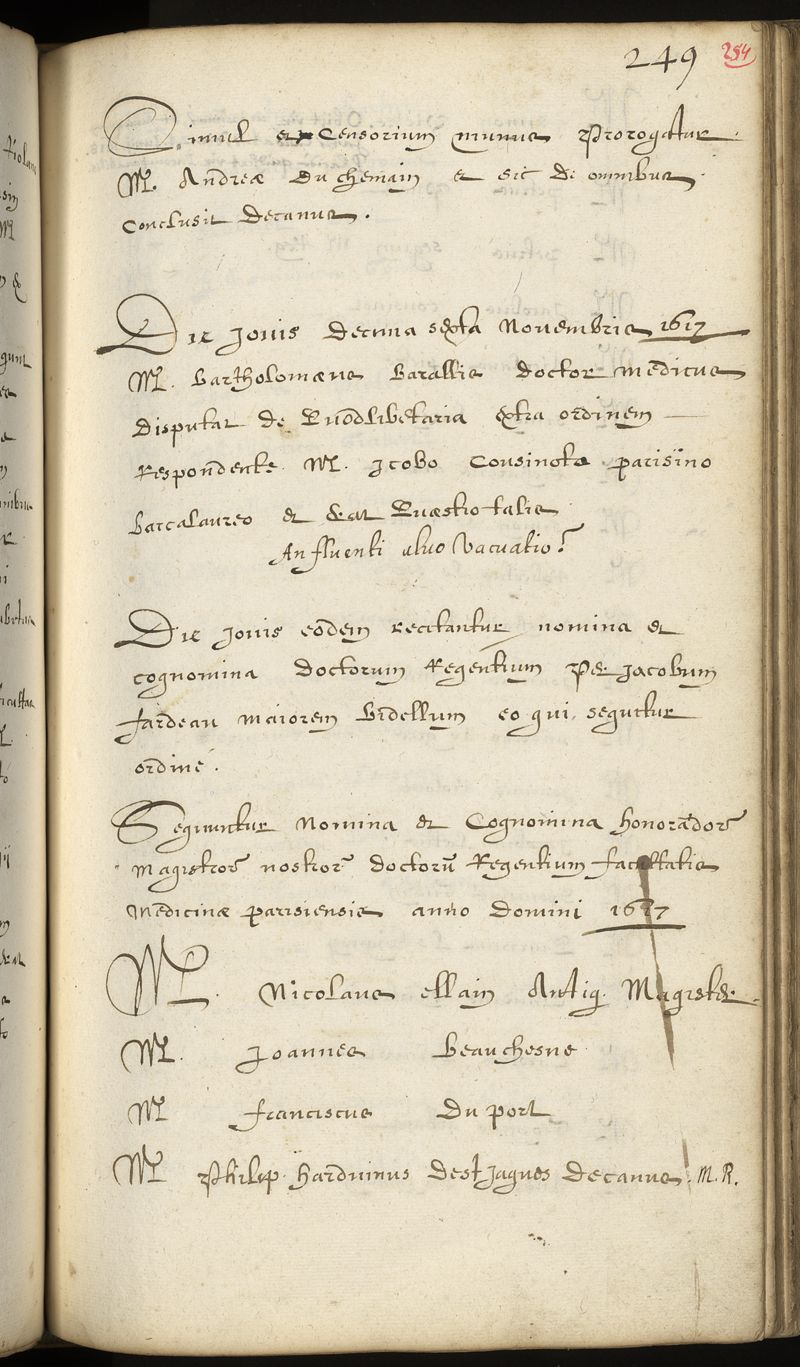 249 254
Simul et Censorium munus Prorogatur
M. Andreæ Du chemain et sic de omnibus
Conclusit Decanus.
Die Jovis Decima sexta Novembris 1617
M. Bartholomæus Barallis doctor medicus
Disputat de Quodlibetaria extra ordinem
Respondente M. Jcobo Cousinote parisino
Baccalaureo et erat Quæstio talis
An fluenti aluo Vacuatio?
Die Jouis eodem recitantur nomina et
cognomina doctorum Regentium per Jacobum
fardeau maiorem bidellum eo qui sequitur
ordine.
Sequuntur Nomina et Cognomina honorādor
magistror nostror doctorū Regentium facultatis
Medicinæ parisiensis anno Domini 1617
M. Nicolaus ellain Antiq. Magister
M. Joannes Beauchesne
M Franciscus Du port
M Philip. harduinus de st Jaques Decanus. M. R.